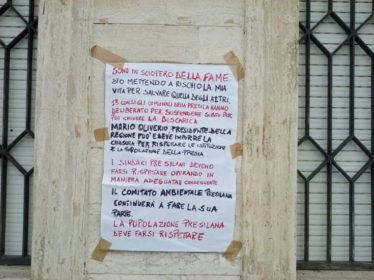 SONO IN SCIOPERO DELLA FAME
STO METTENDO A RISCHIO LA MIA
VITA PER SALVARE QUELLA DEGLI ALTRI.
13 CONSIGLI COMUNALI DELLA PRESILA HANNO
DELIBERATO PER SOSPENDERE SUBITO PER
POI CHIUDERE LA DISCARICA
MARIO OLIVERIO, PRESIDENTE DELLA
REGIONE PUO' E DEVE IMPORRE LA
CHIUSURA PER RISPETTARE LE ISTITUZIONI
E LA POPOLAZIONE DELLA PRESILA
I SINDACI PRESILANI DEVONO
FARSI RISPETTARE OPERANDO IN
MANIERA ADEGUATA E CONSEGUENTE
IL COMITATO AMBIENTALE PRESILANO
CONTINUERÀ A FARE LA SUA
PARTE.
LA POPOLAZIONE PRESILANA
DEVE FARSI RISPETTARE